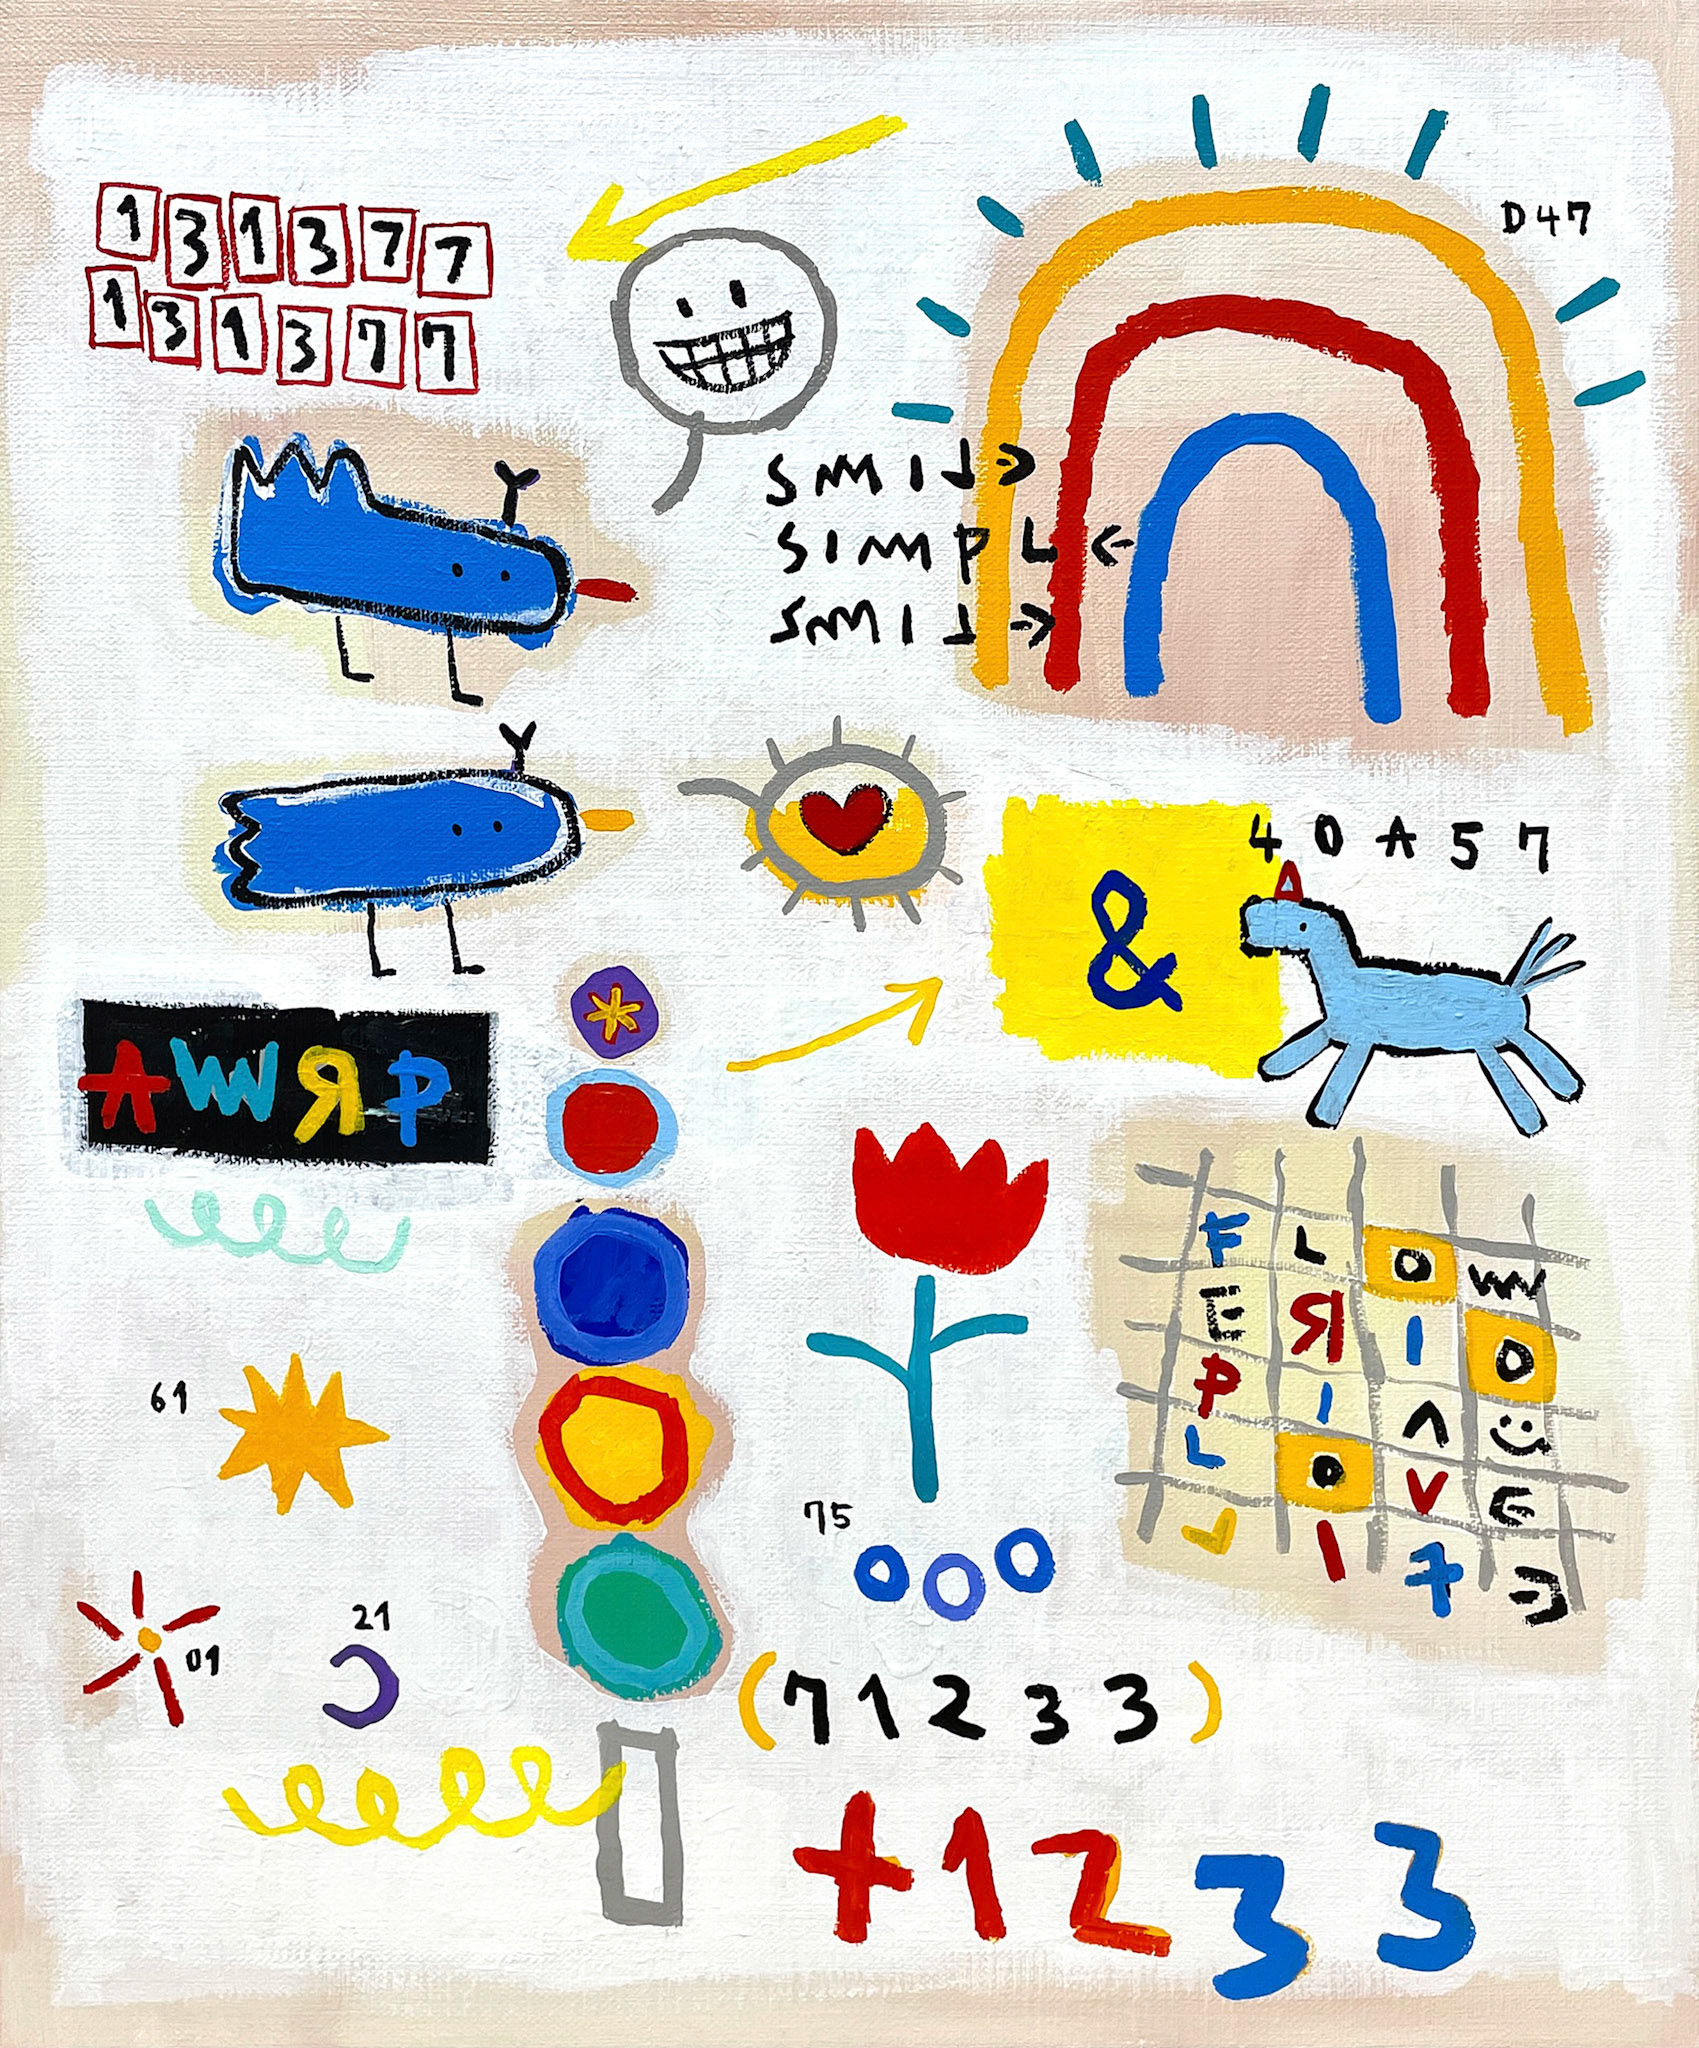 131377
131377
D47
SMI⅃→
SIMPL←
SMI⅃→
40A57
&
AWЯP
F L O W
E Я I O
P I Λ
L O V E
⅃ I Ʇ Ǝ
61
75
01
21
(71233)
+1233